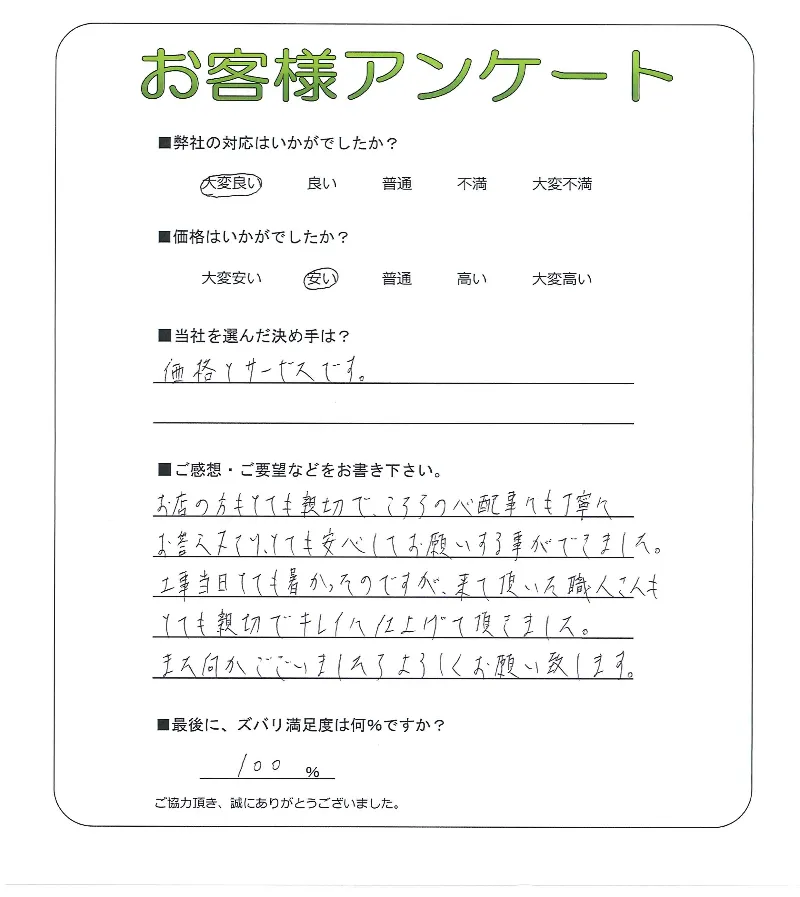 お客様アンケート
■弊社の対応はいかがでしたか？
大変良い 良い 普通 不満 大変不満
■価格はいかがでしたか？
大変安い 安い 普通 高い 大変高い
■当社を選んだ決め手は？
価格とサービスです。
■ご感想・ご要望などをお書き下さい。
お店の方もとても親切で、こちらの心配事にも丁寧に
お答え下さり、とても安心してお願いする事ができました。
工事当日とても暑かったのですが、来て頂いた職人さんも
とても親切でキレイに仕上げて頂きました。
また何かございましたらよろしくお願い致します。
■最後に、ズバリ満足度は何%ですか？
100 %
ご協力頂き、誠にありがとうございました。